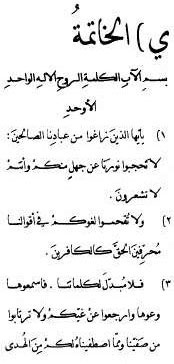 ي) الخاتمةُ
بسم الآب الكلمة الروح الاله الواحد
الأوحد
١) يأيها الذين زاغوا من عبادنا الصالحين:
لا تحجبوا نورنا عن جهل منكم وأنتم
لا تشعرون.
٢) ولا تقحموا لغوكم في أقوالنا
محرّفين الحقّ كالكافرين.
٣) فلا مُبدّل لكلماتنا. فاسمعوها
وعوها وارجعوا عن غيّكم ولا ترتابوا
من صفيّنا وممّا اصطفيناه لكم من الهدى